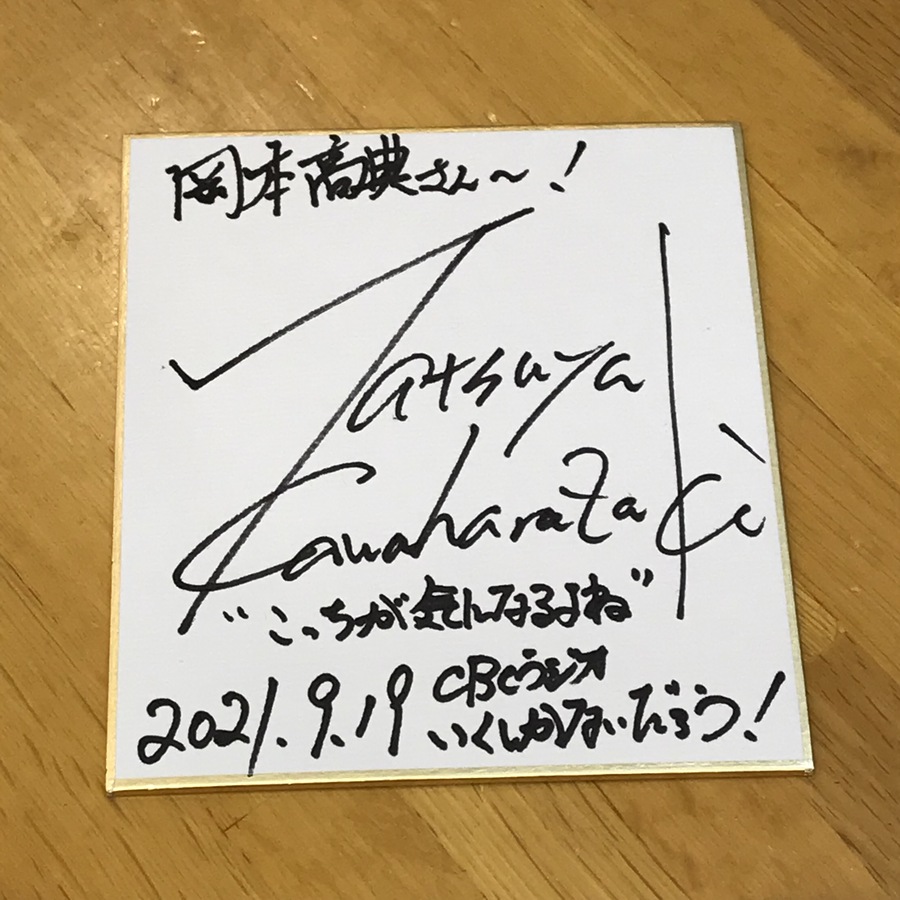 岡本高典さん〜!
Tatsuya
Kawarataki
"こっちが気んなるよね"
2021.9.19 CBCラジオ
いくしかないだろう!